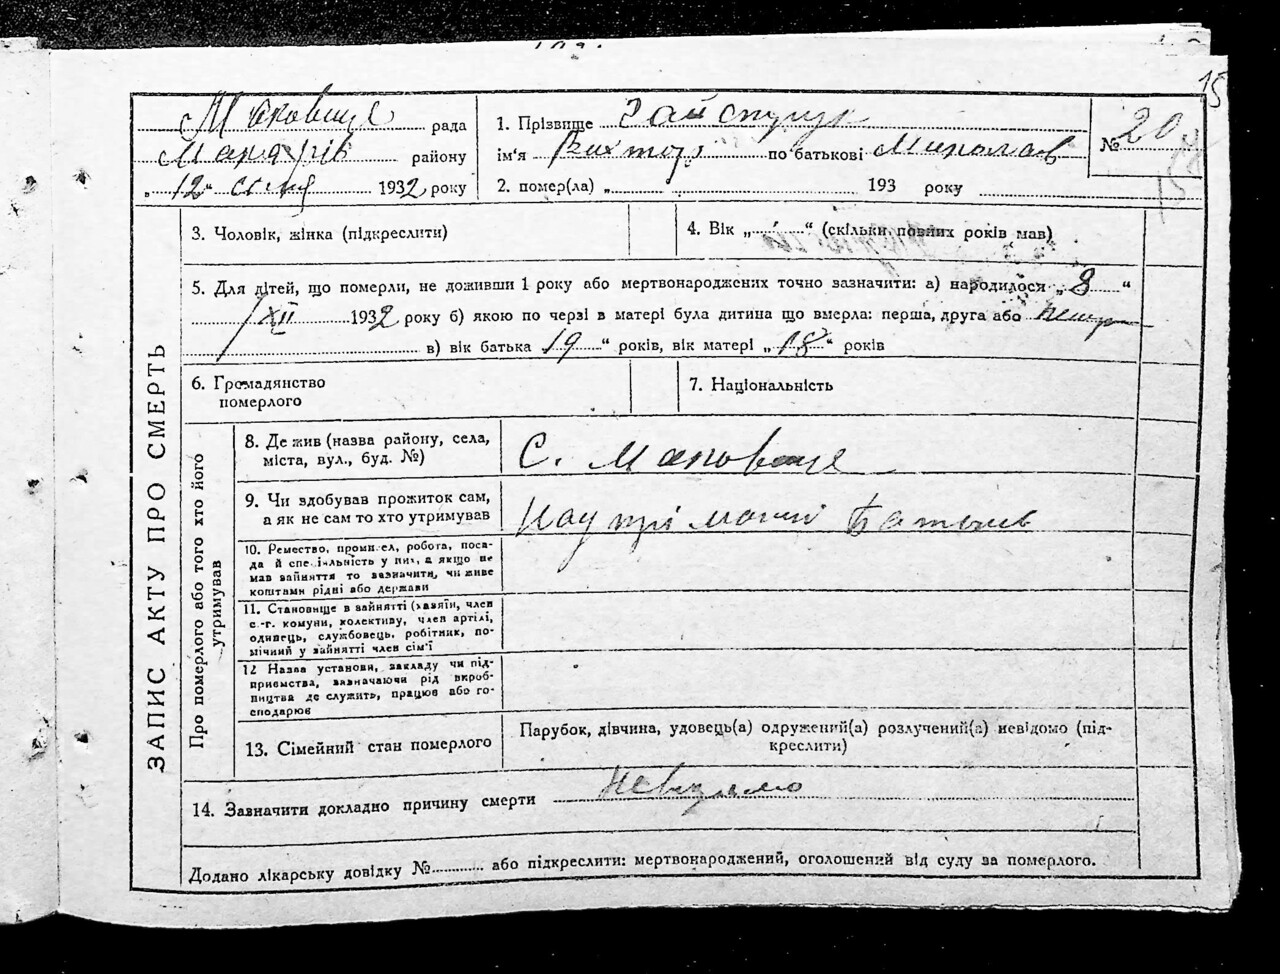 15
Маковище рада
Макарів району
„ 12 " січня 1932 року
1. Прізвище Гайструк
ім'я Виктор по батькові Миколаєв
№ 20
2. помер(ла) „ 193 року
3. Чоловік, жінка (підкреслити)
4. Вік „ " (скільки повних років мав)
5. Для дітей, що померли, не доживши 1 року або мертвонароджених точно зазначити: а) народилося „ 8 "
XII 1932 року б) якою по черзі в матері була дитина що вмерла: перша, друга або
в) вік батька 19 " років, вік матері „ 18 " років
6. Громадянство
померлого
7. Національність
ЗАПИС АКТУ ПРО СМЕРТЬ
Про померлого або того хто його
утримував
8. Де жив (назва району, села,
міста, вул., буд. №)
С. Маковище
9. Чи здобував прожиток сам,
а як не сам то хто утримував
На утрі манні Батьків
10. Ремество, промисел, робота, поса-
да й спеціальність у них, а якщо не
мав зайняття то зазначити, чи живе
коштами рідні або держави
11. Становище в зайнятті (хазяїн, член
с.-г. комуни, колективу, член артілі,
одинець, службовець, робітник, по-
мічний у зайнятті член сім'ї
12 Назва установи, закладу чи під-
приємства, зазначаючи рід вироб-
ництва де служить, працює або го-
сподарює
13. Сімейний стан померлого
Парубок, дівчина, удовець(а) одружений(а) розлучений(а) невідомо (під-
креслити)
14. Зазначити докладно причину смерти невідомо
Додано лікарську довідку № або підкреслити: мертвонароджений, оголошений від суду за померлого.